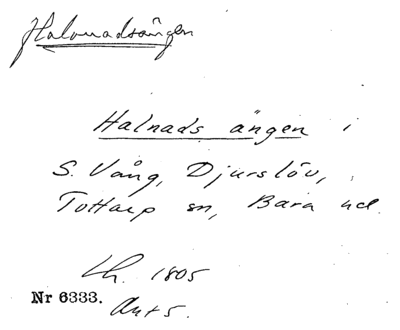 Halvnadsängen
Halnads ängen i
S. Vång, Djurslöv,
Tottarp sn, Bara hd.
Lh. 1805
Nr 6333.
Ant 5.